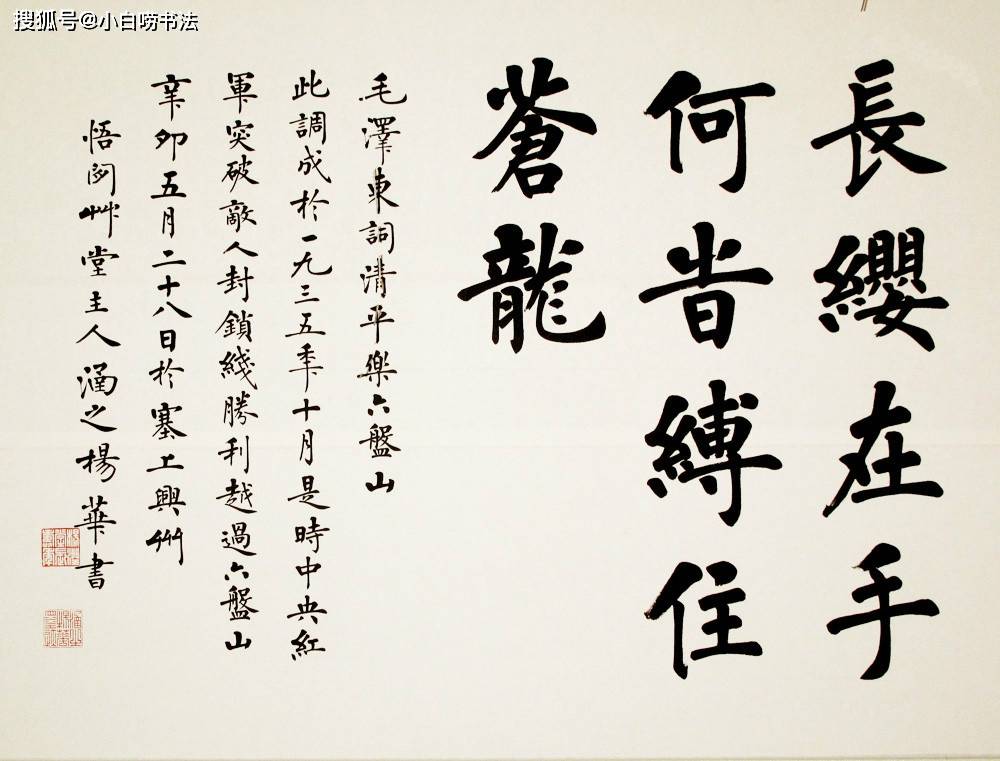 搜狐号@小白唠书法
長纓在手
何旹縛住
蒼龍
毛澤東詞清平樂六盤山
此調成於一九三五秊十月是時中央紅
軍突破敵人封鎖綫勝利越過六盤山
辛卯五月二十八日於塞上興州
悟閎艸堂主人涵之楊華書